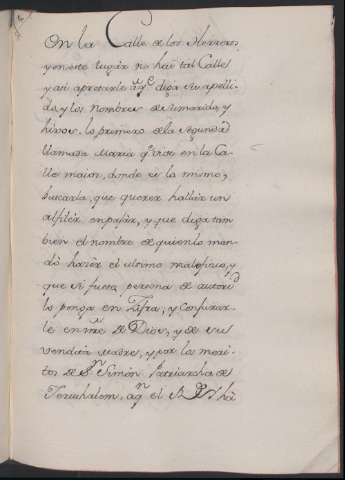 en la Calle de los Herreros,
y en este lugar no hai tal Calle
y asi apretarle a q.e diga su apelli-
do, y los nombres de su marido, y
hijos. lo primero de la segunda
llamada Maria q.e vive en la Ca-
lle maior, donde es lo mismo,
buscarla, que querer hallar un
alfiler en pajar, y que diga tam-
bien el nombre de quien lo man-
dò hacer el ultimo maleficio, y
que si fuese persona de autori.d
lo ponga en Zifra, y Conjurar-
le en n.re de Dios, y de su
vendita Madre, y por los meri-
tos de S.n Simòn Patriarcha de
Jerushalem, a q.n el S.r ha